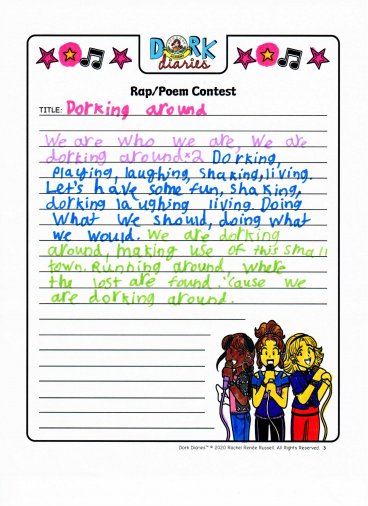 DORK
diaries
Rap/Poem Contest
TITLE: Dorking around
We are who we are, We are
dorking around*2 Dorking,
Playing, laughing, shaking, living.
Let's have some fun, shaking,
dorking laughing living. Doing
What we should, doing what
we would. We are dorking
around, making use of this small
town. Running around, where
the lost are found. 'cause we
are dorking around.
Dork Diaries™ © 2020 Rachel Renée Russell. All Rights Reserved. 3